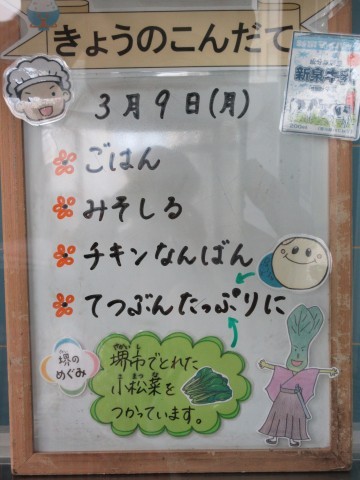 きょうのこんだて
3月9日(月)
ごはん
みそしる
チキンなんばん
てつぶんたっぷりに
堺の
めぐみ
堺市でとれた
小松菜を
つかっています。
新泉牛乳